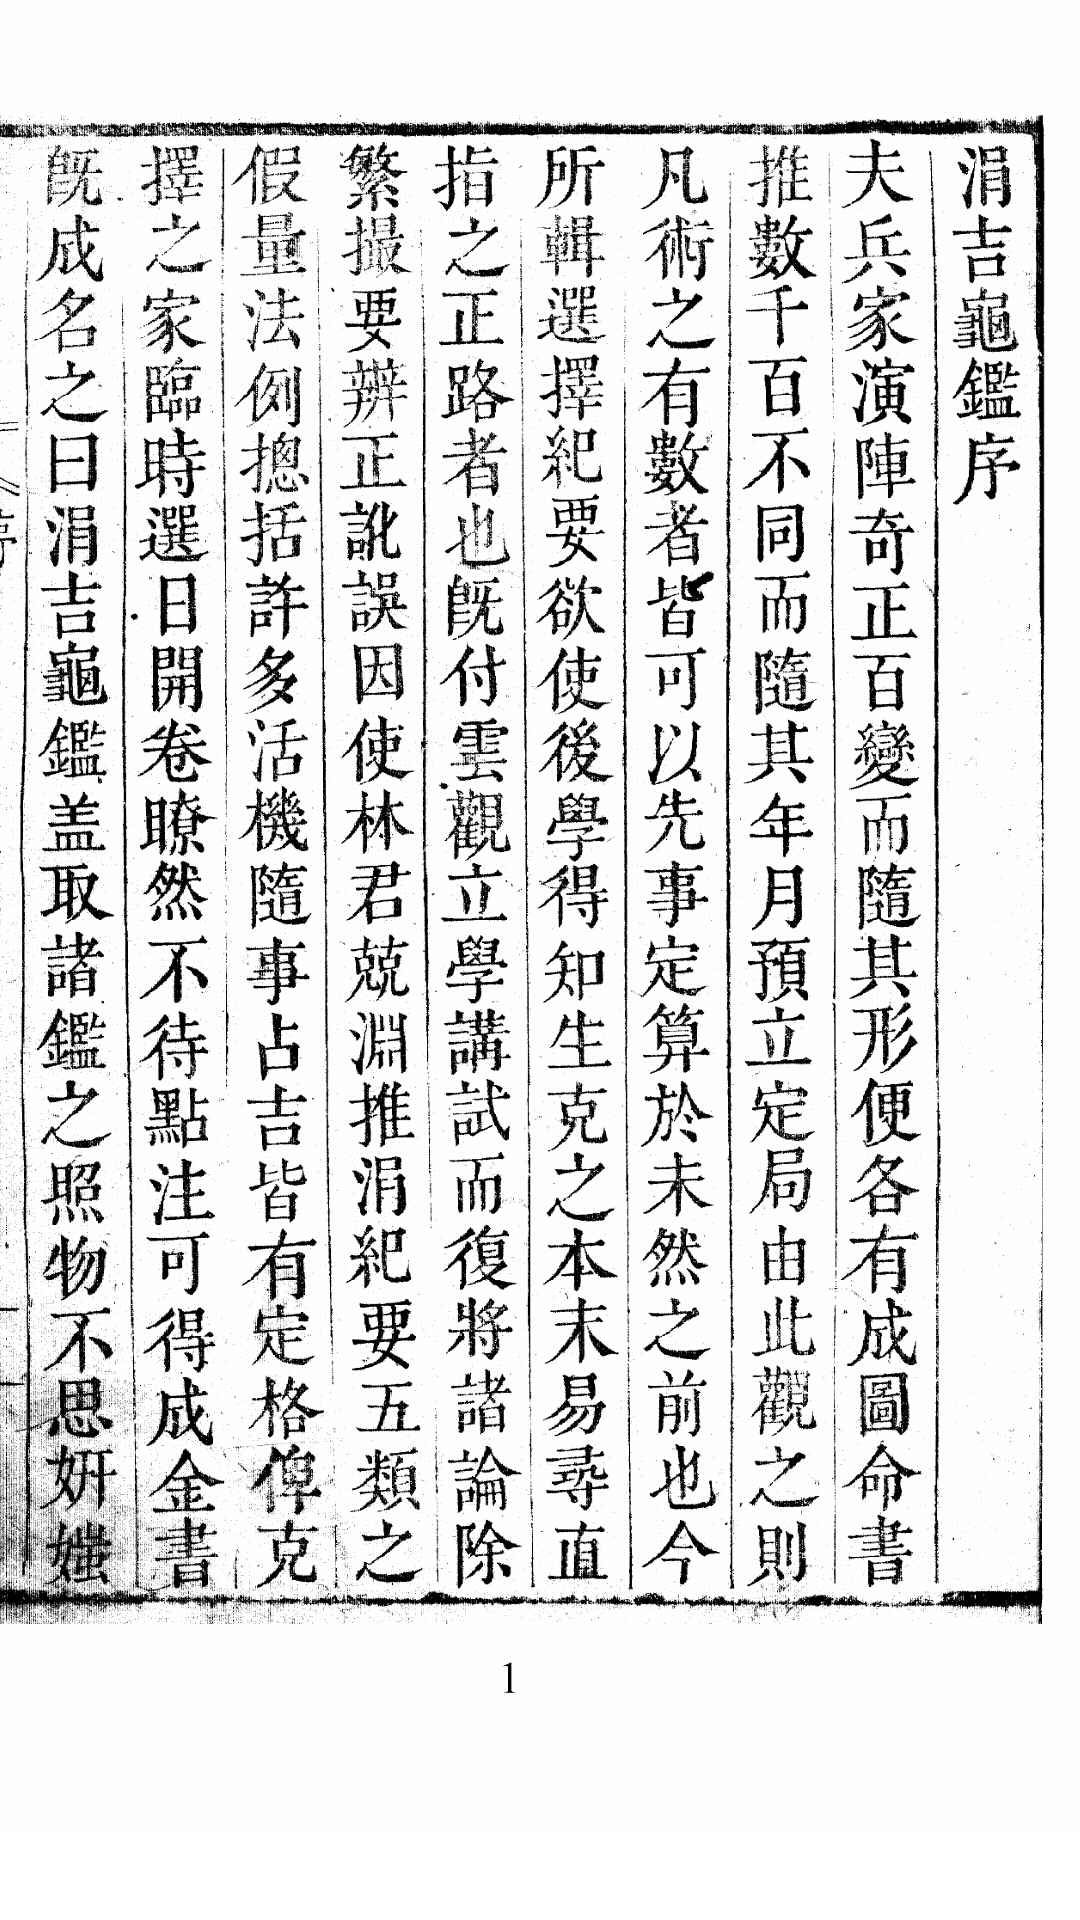 涓吉龜鑑序
夫兵家演陣奇正百變而隨其形便各有成圖命書
推數千百不同而隨其年月預立定局由此觀之則
凡術之有數者皆可以先事定算於未然之前也今
所輯選擇紀要欲使後學得知生克之本末易尋直
指之正路者也旣付雲觀立學講試而復將諸論除
繁撮要辨正訛誤因使林君兢淵推涓紀要五類之
假量法例摠括許多活機隨事占吉皆有定格俾克
擇之家臨時選日開卷瞭然不待點注可得成金書
旣成名之曰涓吉龜鑑盖取諸鑑之照物不思妍媸
1